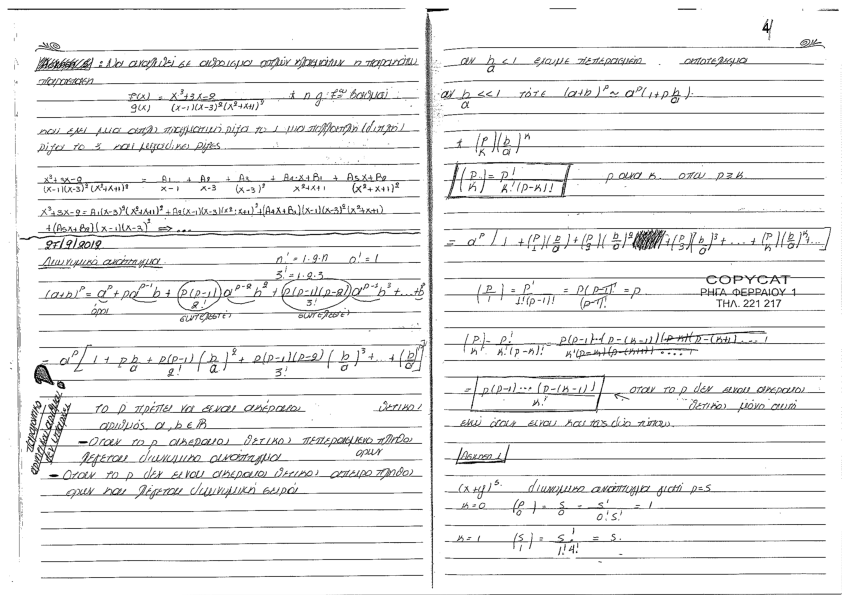 : Να αναλυθεί σε άθροισμα απλών κλασμάτων η παρακάτω
παράσταση
f(x)/g(x) = x³+3x-2 / (x-1)(x-3)²(x²+x+1)²
και έχει μια απλή πραγματική ρίζα το 1 μια πολλαπλή (διπλή)
ρίζα το 3 και μιγαδικές ρίζες.
x³+3x-2 / (x-1)(x-3)²(x²+x+1)² = A₁/x-1 + A₂/x-3 + A₃/(x-3)² + A₄x+B₁/x²+x+1 + A₅x+B₂/(x²+x+1)²
x³+3x-2 = A₁(x-3)²(x²+x+1)² + A₂(x-1)(x-3)(x²+x+1)² + (A₄x+B₁)(x-1)(x-3)²(x²+x+1)
+(A₅x+B₂)(x-1)(x-3)² ⟹ ...
27/9/2012
Διωνυμικό ανάπτυγμα. n! = 1·2·n 0! = 1
3! = 1·2·3
(a+b)ᵖ = aᵖ + paᵖ⁻¹b + p(p-1)/2! aᵖ⁻²b² + p(p-1)(p-2)/3! aᵖ⁻³b³ + ... + bᵖ
όροι συντελεστές συντελεστές
= aᵖ[1 + p b/a + p(p-1)/2! (b/a)² + p(p-1)(p-2)/3! (b/a)³ + ... + (b/a)ᵖ]
το p πρέπει να είναι ακέραιος θετικός
αριθμός a, b ∈ ℝ
- Όταν το p ακέραιος θετικός πεπερασμένο πλήθος
λέγεται διωνυμικό ανάπτυγμα όρων
- Όταν το p δεν είναι ακέραιος θετικός άπειρο πλήθος
όρων και λέγεται διωνυμική σειρά
4
αν b/a < 1 έχουμε πεπερασμένο αποτέλεσμα
αν b/a << 1 τότε (a+b)ᵖ ~ aᵖ(1+p b/a).
+ (p/k)(b/a)ᵏ
(p/k) = p!/k!(p-k)! p ανά k. όπου p≥k.
= aᵖ[1 + (p/1)(b/a) + (p/2)(b/a)² + (p/3)(b/a)³ + ... + (p/k)(b/a)ᵏ...]
(p/1) = p!/1!(p-1)! = p(p-1)!/(p-1)! = p
COPYCAT
ΡΗΓΑ ΦΕΡΡΑΙΟΥ 1
ΤΗΛ. 221 217
(p/k) = p!/k!(p-k)! = p(p-1)...(p-(k-1))(p-k)(p-(k+1)...1/k!(p-k)(p-(k+1)....1
= p(p-1)...(p-(k-1))/k! ← όταν το p δεν είναι ακέραιος
θετικός μόνο αυτή
ενώ όταν είναι και τις δύο τύπους.
Άσκηση 1
(x+y)⁵ διωνυμικό ανάπτυγμα γιατί p=5
k=0 (p/0) = 5/0 = 5!/0!5! = 1
k=1 (5/1) = 5!/1!4! = 5.